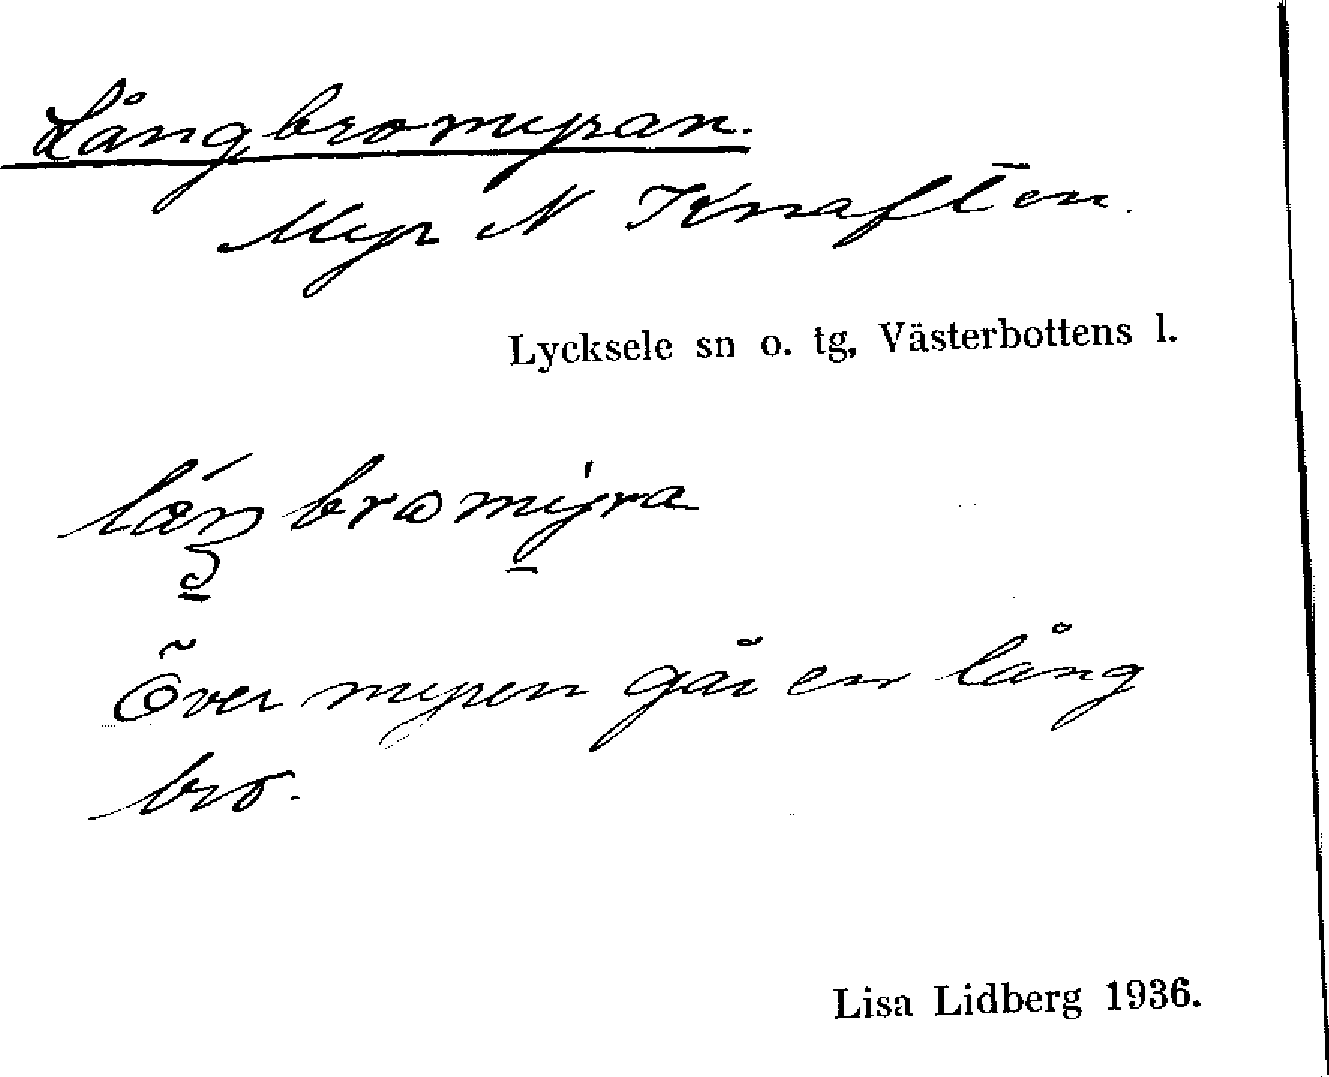 Långbromyran.
Myr N Knaften.
Lycksele sn o. tg, Västerbottens l.
Över myren går en lång
bro.
Lisa Lidberg 1936.